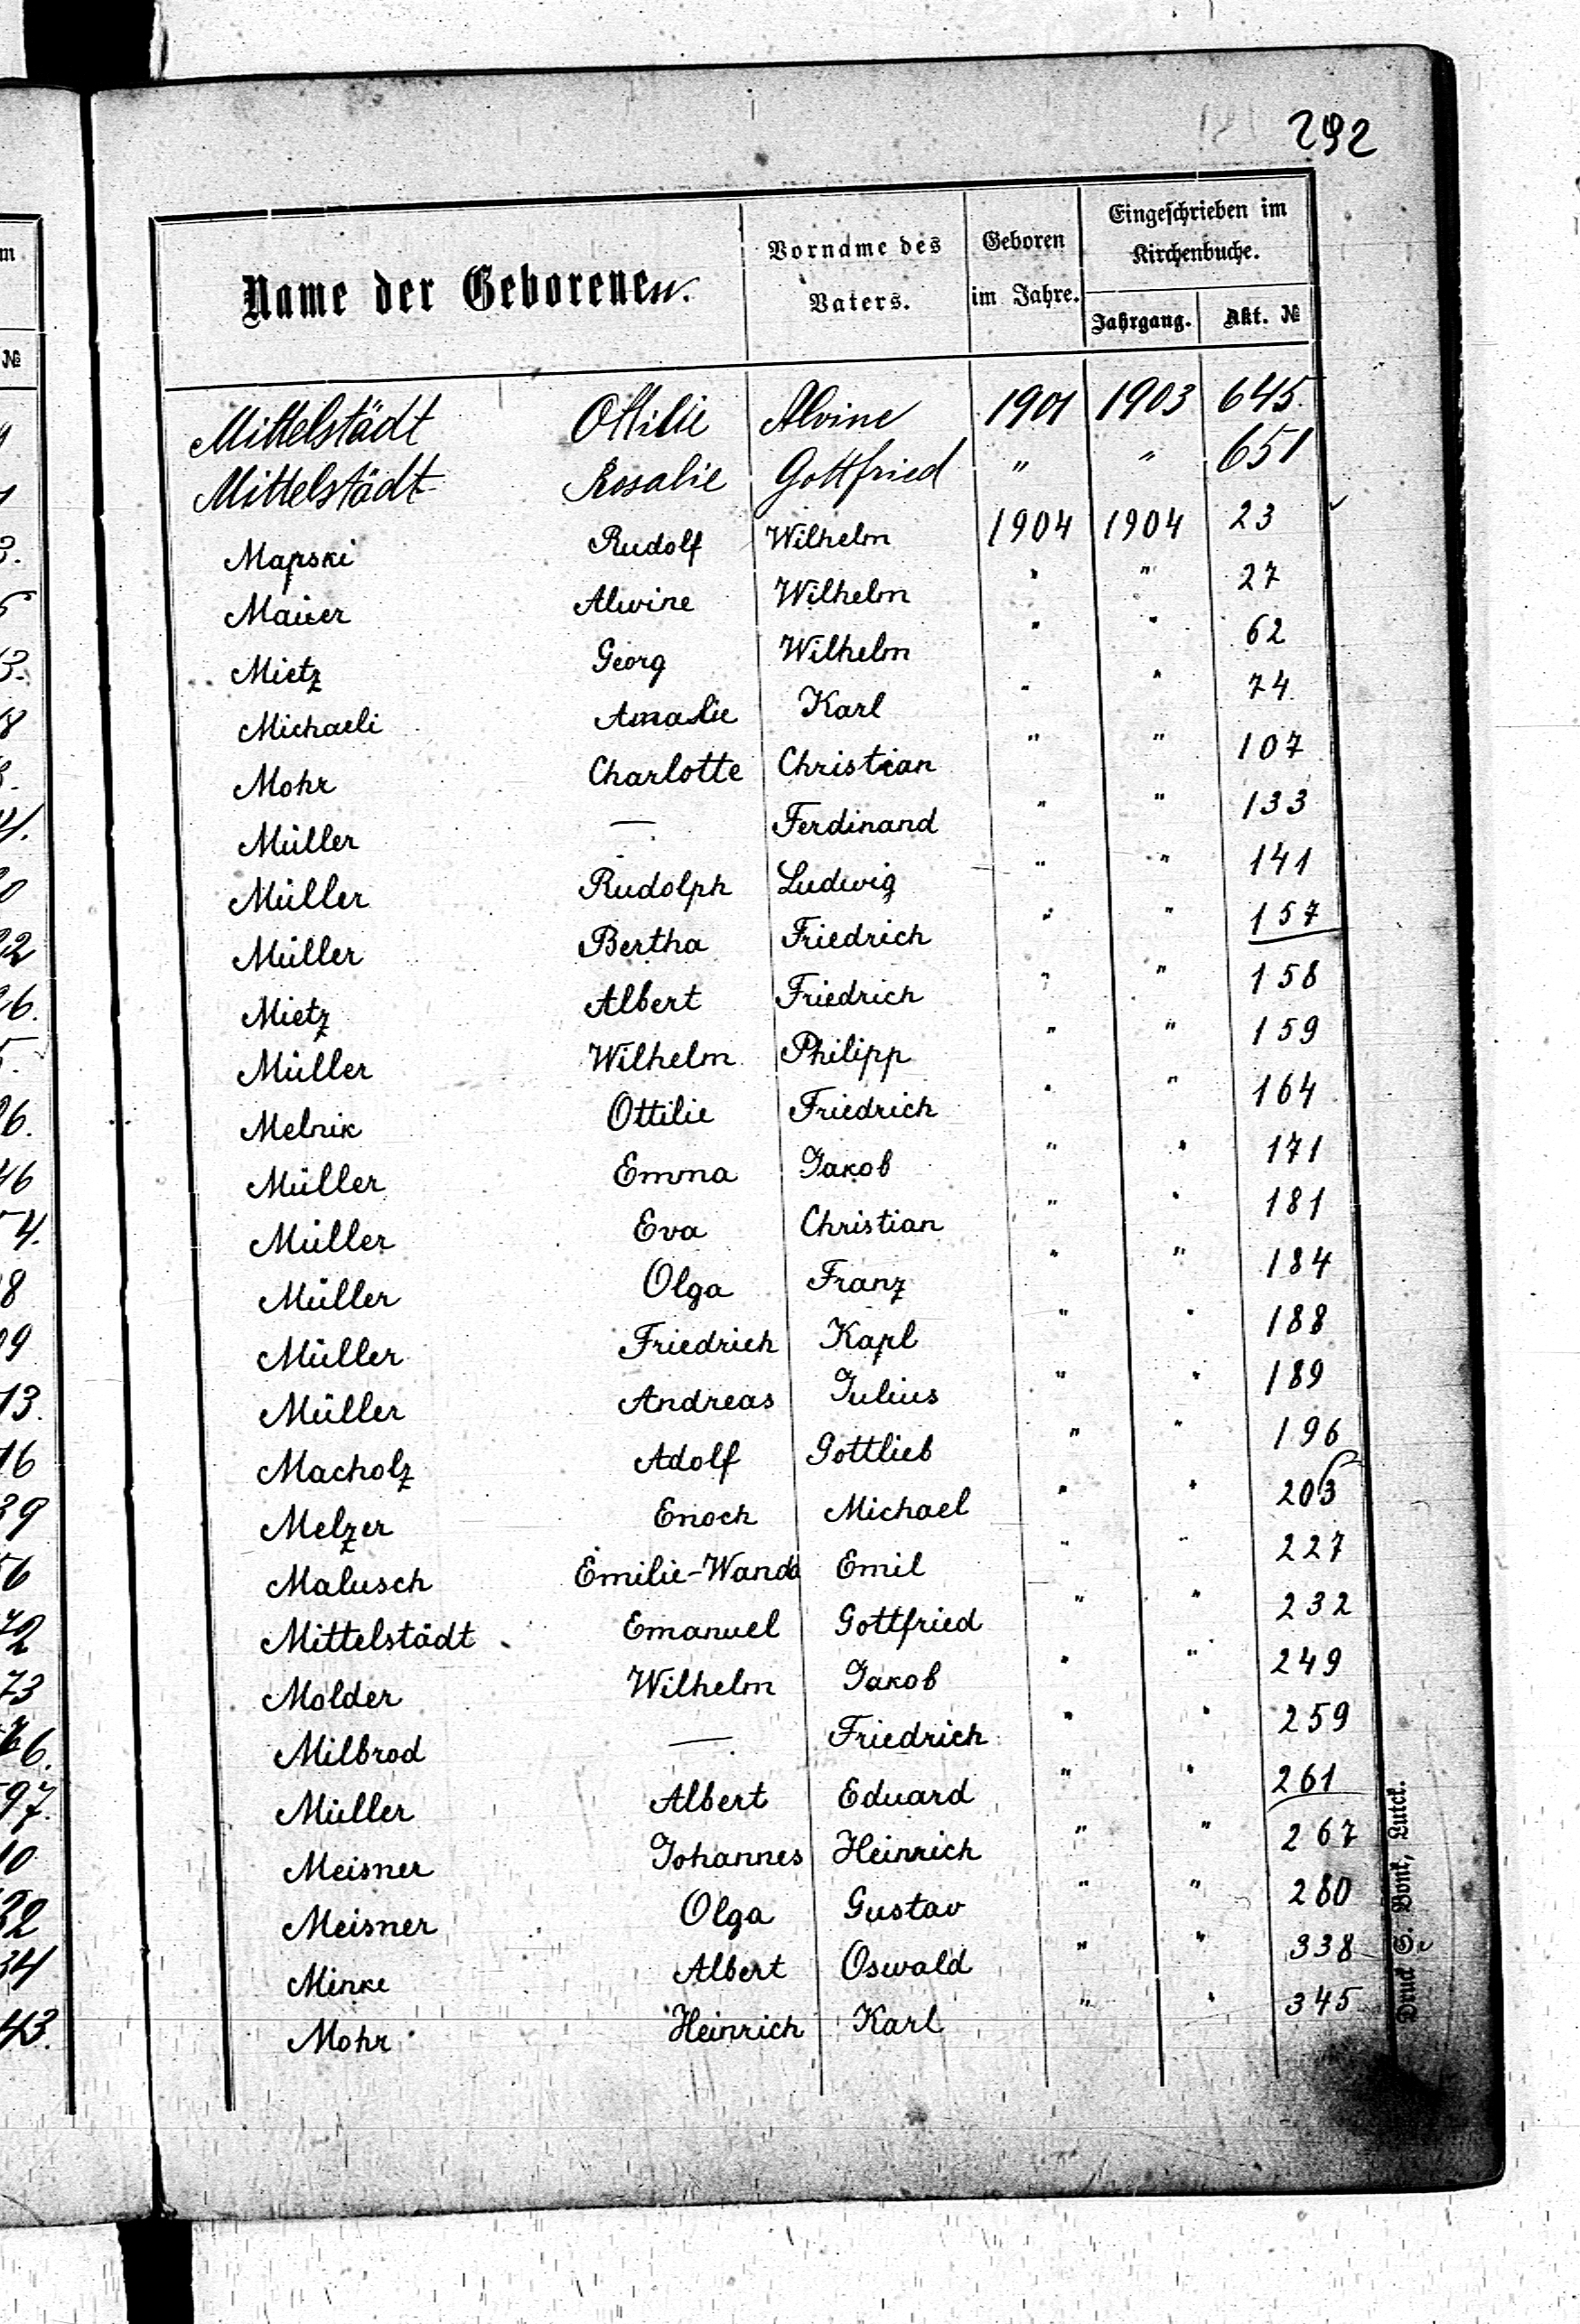 292
Name der Geborenen.
Vorname des Vaters.
Geboren im Jahre.
Eingeschrieben im Kirchenbuche.
Jahrgang. Akt. №
Mittelstädt Ottilie Alvine 1901 1903 645.
Mittelstädt Rosalie Gottfried " " 651
Mapski Rudolf Wilhelm 1904 1904 23
Mauer Alwine Wilhelm " " 27
Mietz Georg Wilhelm " " 62
Michaeli Amalie Karl " " 74
Mohr Charlotte Christian " " 107
Müller — Ferdinand " " 133
Müller Rudolph Ludwig " " 141
Müller Bertha Friedrich " " 157
Mietz Albert Friedrich " " 158
Müller Wilhelm Philipp " " 159
Melnik Ottilie Friedrich " " 164
Müller Emma Jakob " " 171
Müller Eva Christian " " 181
Müller Olga Franz " " 184
Müller Friedrich Kapl " " 188
Müller Andreas Julius " " 189
Macholz Adolf Gottlieb " " 196
Melzer Enoch Michael " "
Malusch Emilie-Wanda Emil " " 227
Mittelstädt Emanuel Gottfried " " 232
Molder Wilhelm Jakob " " 249
Milbrod — Friedrich " " 259
Müller Albert Eduard " " 261
Meisner Johannes Heinrich " " 267
Meisner Olga Gustav " " 280
Minke Albert Oswald " " 338
Mohr Heinrich Karl " " 345
Druck S. Bonk, Lutck.